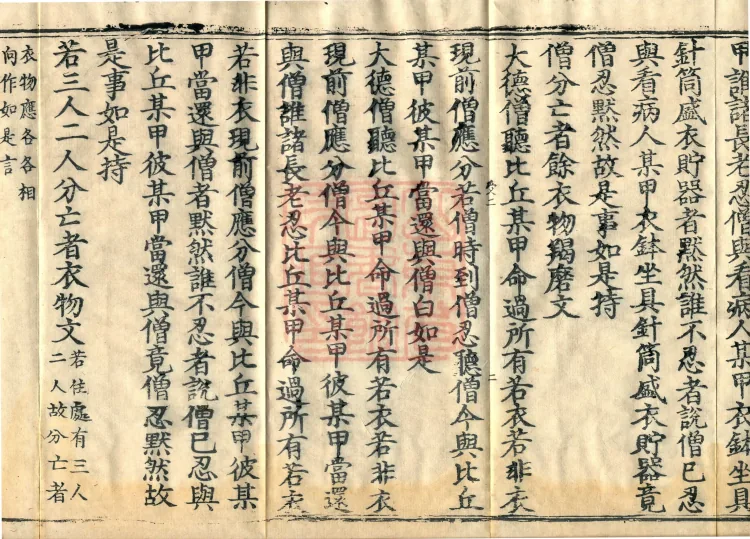 甲誰諸長老忍僧與看病人某甲衣鉢坐具
針筒盛衣貯器者默然誰不忍者說僧已忍
與看病人某甲衣鉢坐具針筒盛衣貯器竟
僧忍默然故是事如是持
僧分亡者餘衣物羯磨文
大德僧聽比丘某甲命過所有若衣若非衣
現前僧應分若僧時到僧忍聽僧今與比丘
某甲彼某甲當還與僧白如是
大德僧聽比丘某甲命過所有若衣若非衣
現前僧應分僧今與比丘某甲彼某甲當還
與僧誰諸長老忍比丘某甲命過所有若衣
若非衣現前僧應分僧今與比丘某甲彼某
甲當還與僧者默然誰不忍者說僧已忍與
比丘某甲彼某甲當還與僧竟僧忍默然故
是事如是持
若三人二人分亡者衣物文若住處有三人
二人故分亡者
衣物應各各相
向作如是言